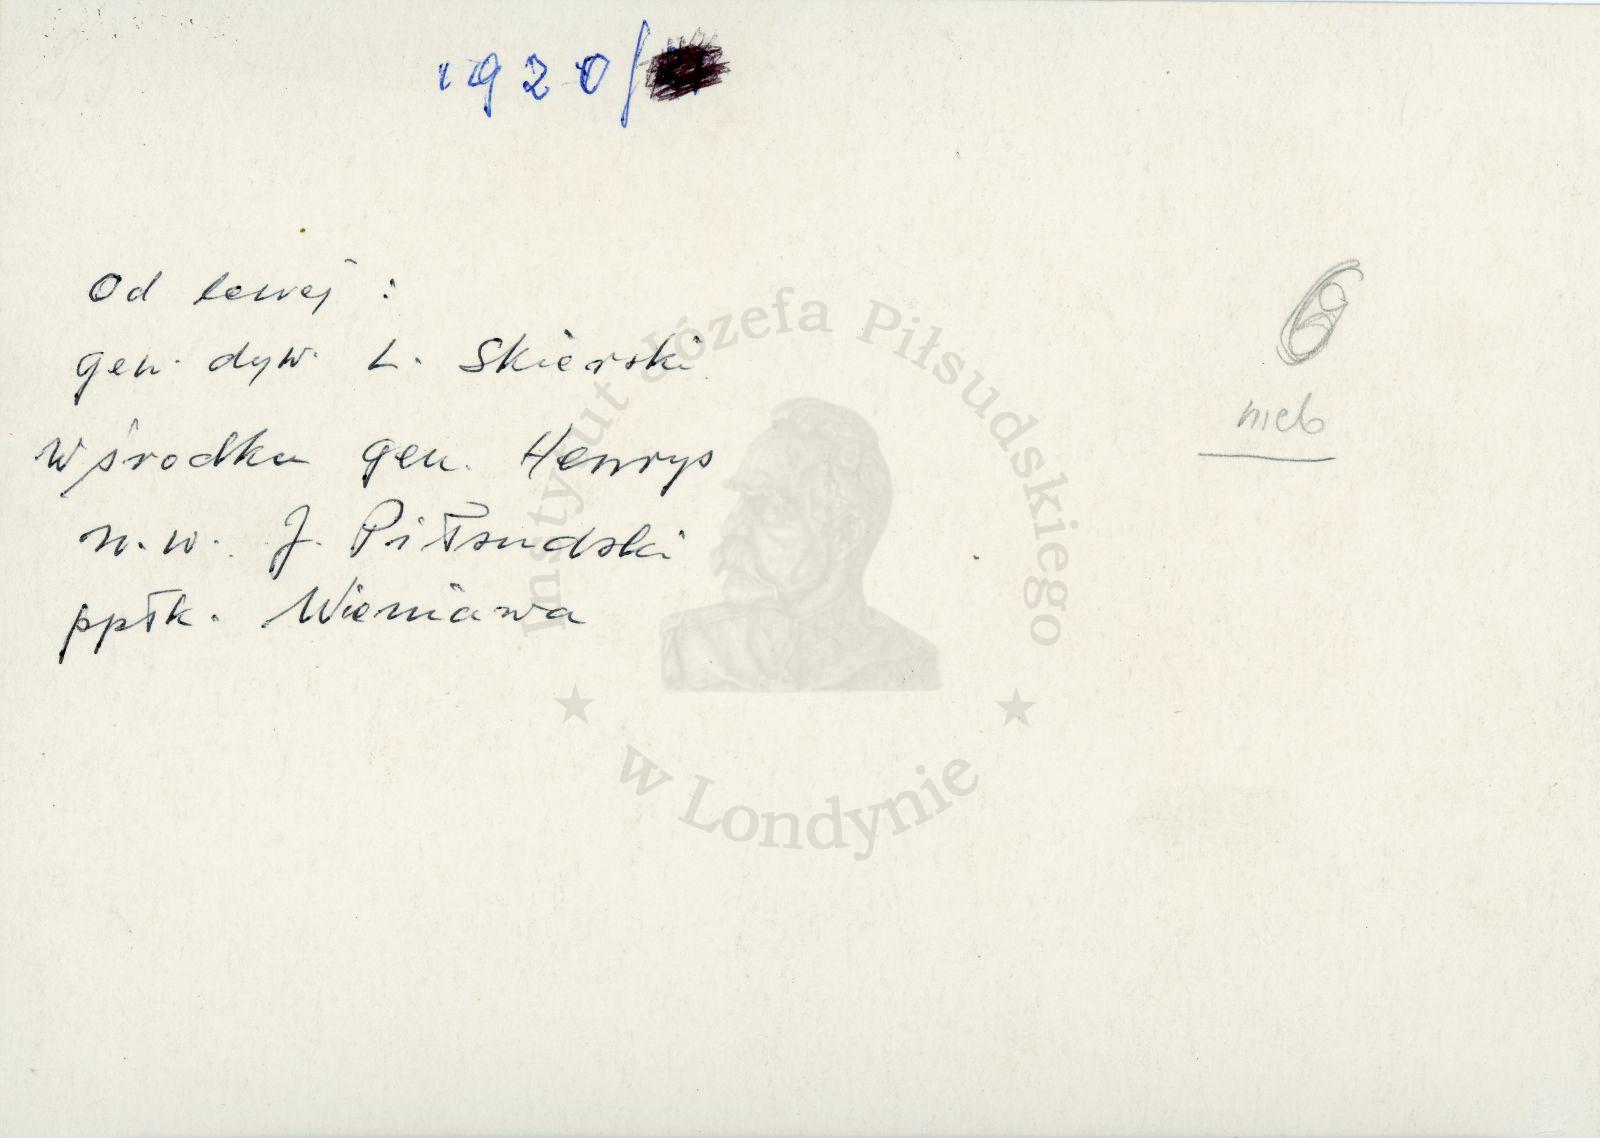 1920/
Od lewej :
gen. dyw. L. Skierski
W środku gen. Henrys
n.w. J. Piłsudski
ppłk. Wieniawa
6
Instytut Józefa Piłsudskiego
w Londynie